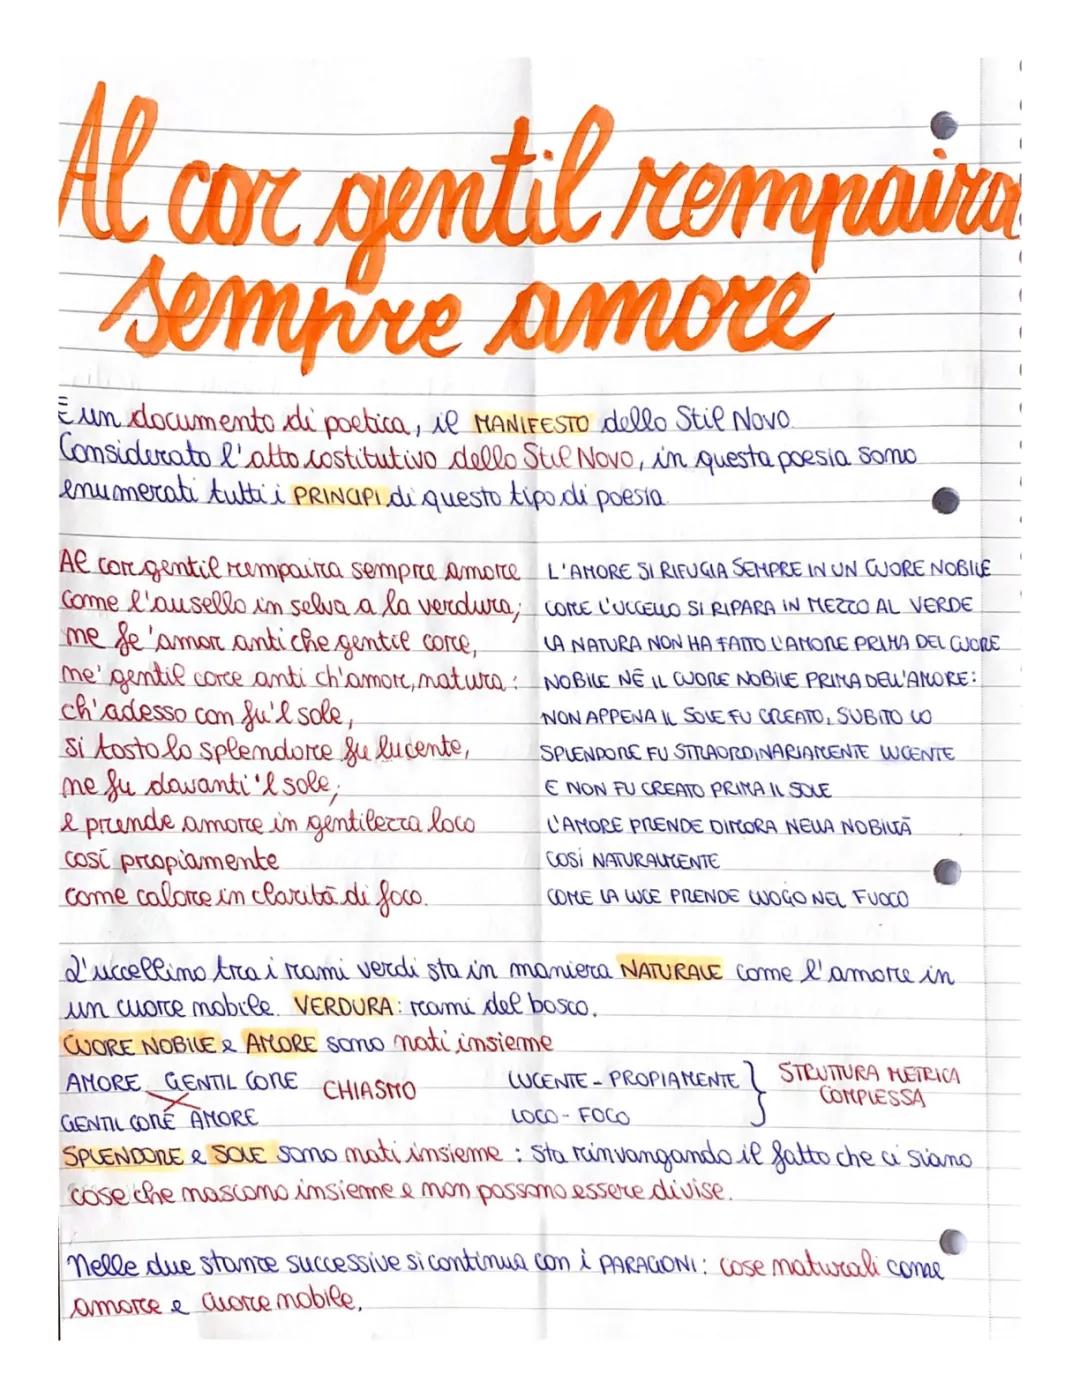 Al cor gentil rempaira
sempre amore
È un documento di poetica, il MANIFESTO dello Stil Novo.
Considerato l'atto costitutivo dello Stil Novo, in questa poesia sono
enumerati tutti i PRINCIPI di questo tipo di poesia.
Al cor gentil rempaira sempre amore
come l'ausello in selva a la verdura;
né fe' amor anti che gentil core,
né gentil core anti ch'amor, natura:
ch'adesso con fu'l sole,
sì tosto lo splendore fu lucente,
né fu davanti 'l sole;
e prende amore in gentilezza loco
così propiamente
come calore in clarità di foco.
L'AMORE SI RIFUGIA SEMPRE IN UN CUORE NOBILE
COME L'UCCELLO SI RIPARA IN MEZZO AL VERDE
LA NATURA NON HA FATTO L'AMORE PRIMA DEL CUORE
NOBILE NÉ IL CUORE NOBILE PRIMA DELL'AMORE:
NON APPENA IL SOLE FU CREATO, SUBITO LO
SPLENDORE FU STRAORDINARIAMENTE LUCENTE
E NON FU CREATO PRIMA IL SOLE
L'AMORE PRENDE DIMORA NELLA NOBILTÀ
COSÌ NATURALMENTE
COME LA LUCE PRENDE LUOGO NEL FUOCO
L'uccellino tra i rami verdi sta in maniera NATURALE come l'amore in
un cuore nobile. VERDURA: rami del bosco.
CUORE NOBILE e AMORE sono nati insieme
AMORE GENTIL CORE
GENTIL CORE AMORE
CHIASMO
LUCENTE - PROPIAMENTE
LOCO - FOCO
STRUTTURA METRICA
COMPLESSA
SPLENDORE e SOLE sono nati insieme: sta rinvangando il fatto che ci siano
cose che nascono insieme e non possono essere divise.
Nelle due stanze successive si continua con i PARAGONI: cose naturali come
amore e cuore nobile.